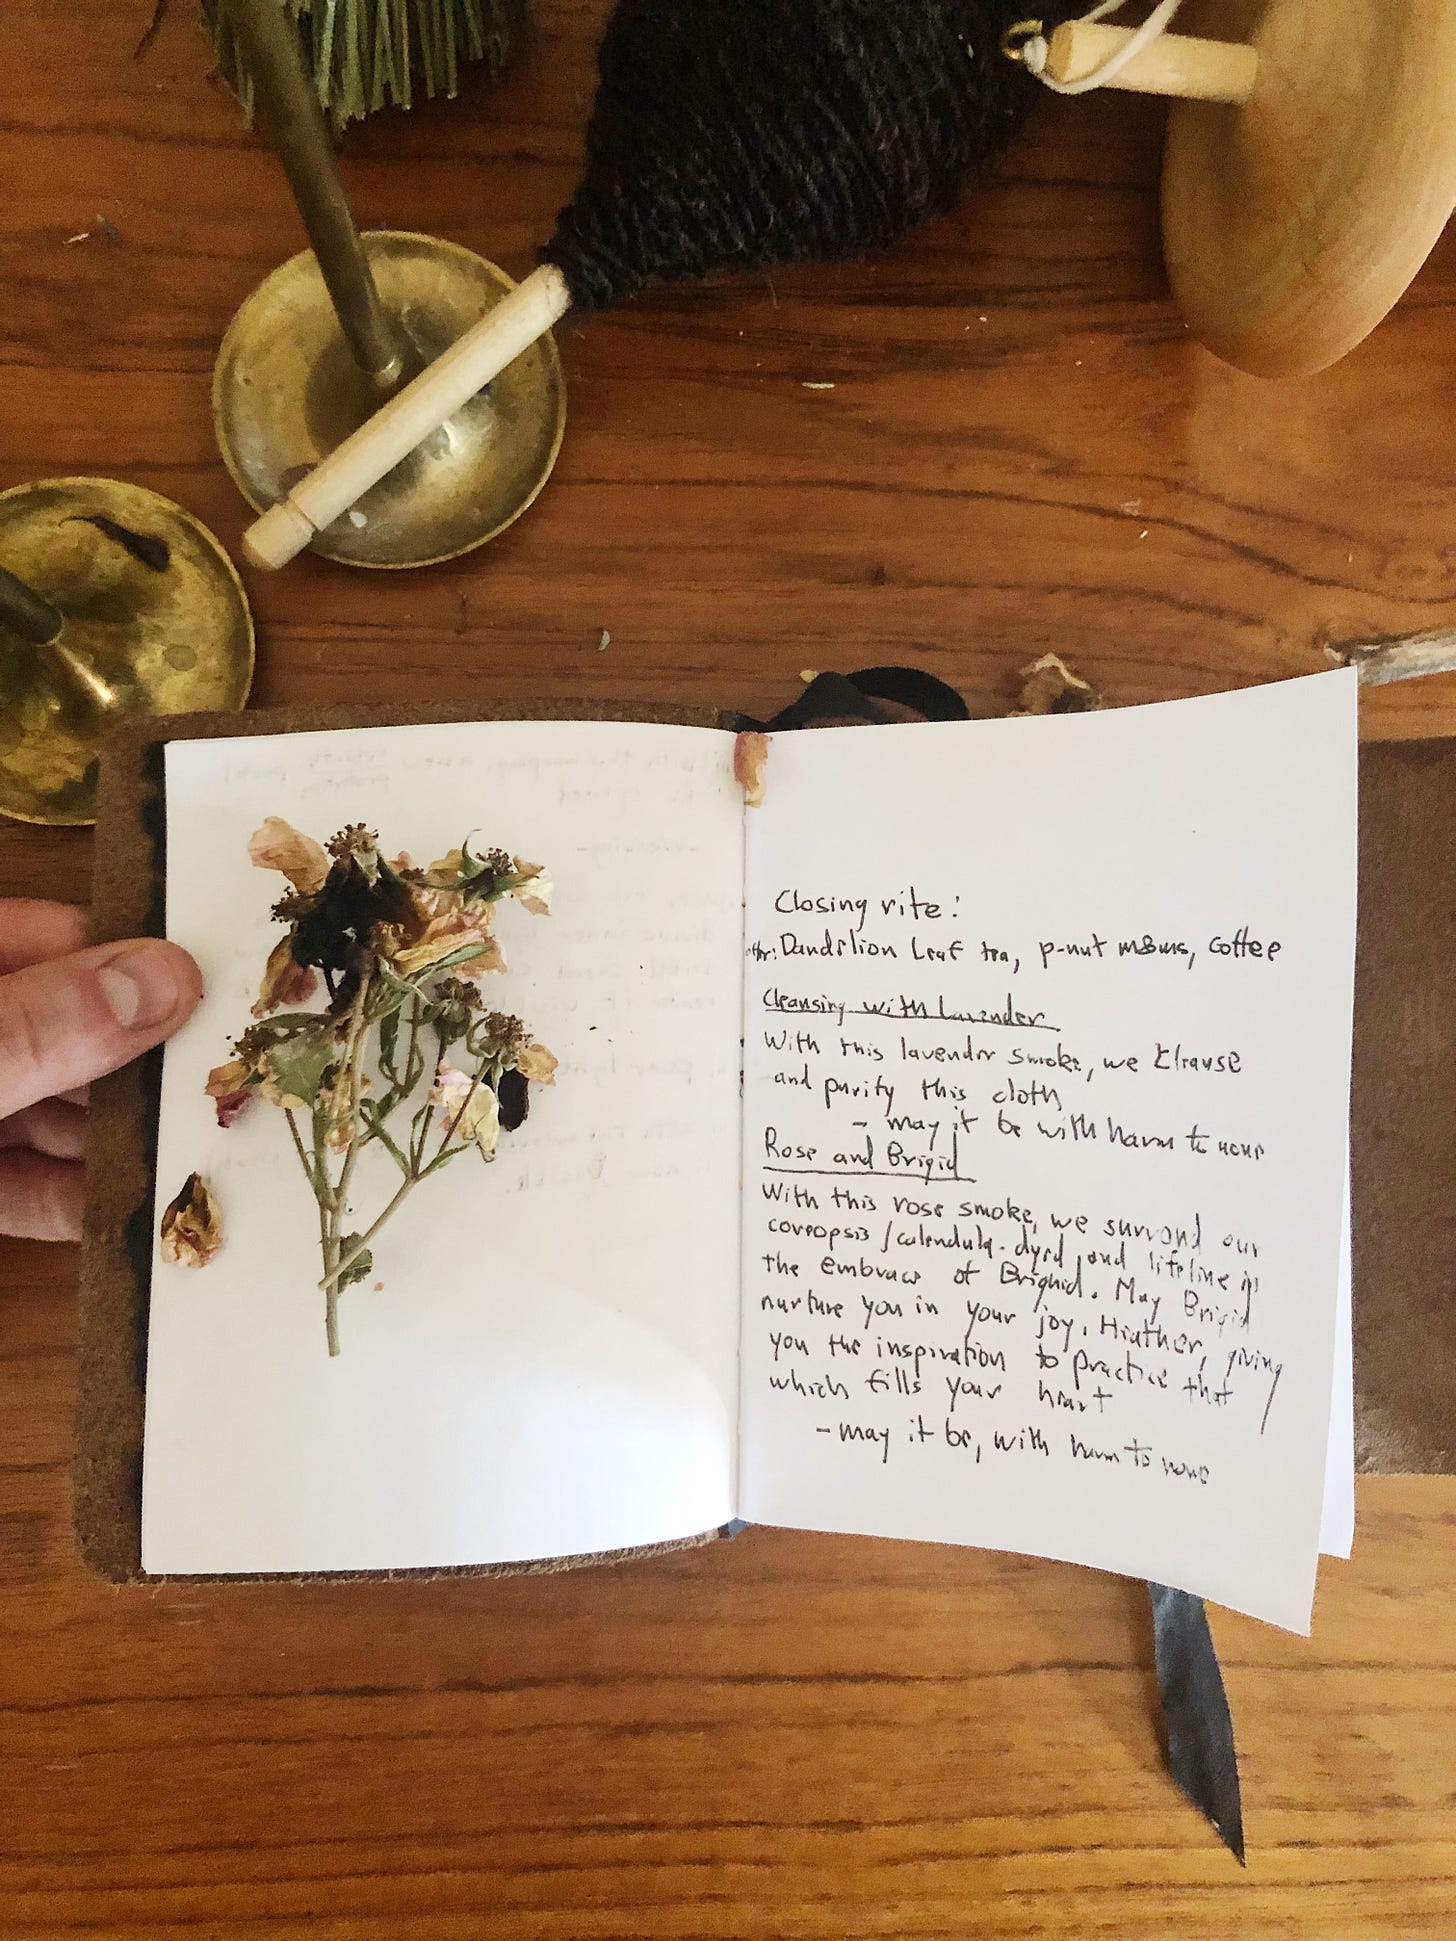 Closing rite:
Dandelion Leaf tea, p-nut m&ms, coffee
Cleansing with Lavender
With this lavender smoke, we cleanse
and purify this cloth
- may it be with harm to none
Rose and Brigid
With this rose smoke, we surround our
coreopsis/calendula-dyed and lifeline in
the embrace of Briguid. May Brigid
nurture you in your joy, Heather, giving
you the inspiration to practice that
which fills your heart
- may it be, with harm to none